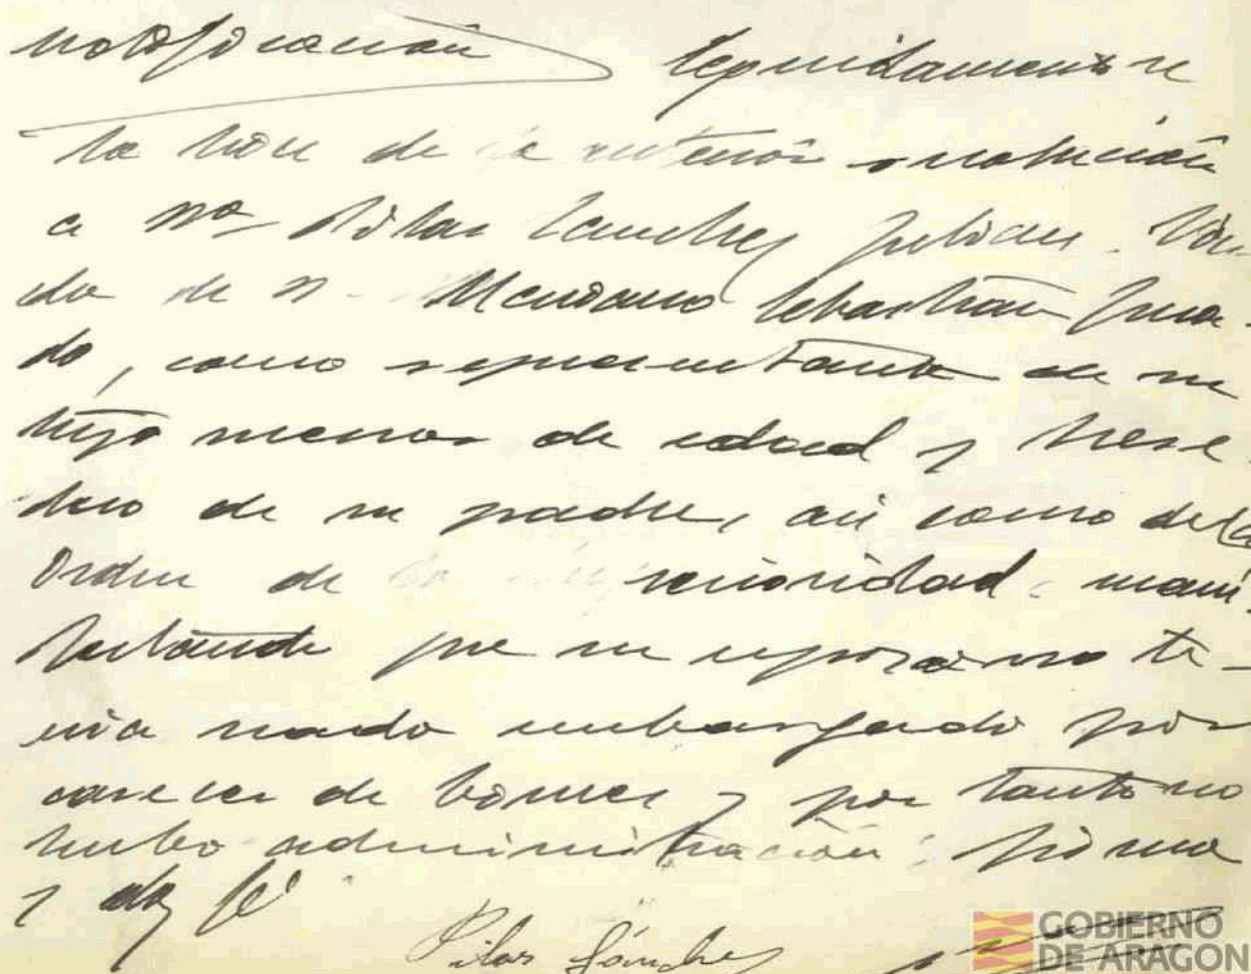 notificación Seguidamente
la hice de la anterior resolución
a Dª Pilar Sanchez Julian. Viu-
da de D. Mariano Sebastián Jura-
do, como representante de su
hijo menor de edad y here-
dero de su padre, asi como de la
Orden de la superioridad, mani-
festando que su esposo no te-
nia nada embargado por
carecer de bienes y por tanto no
hubo administración: firma
y doy fé
Pilar Sánchez
GOBIERNO
DE ARAGON